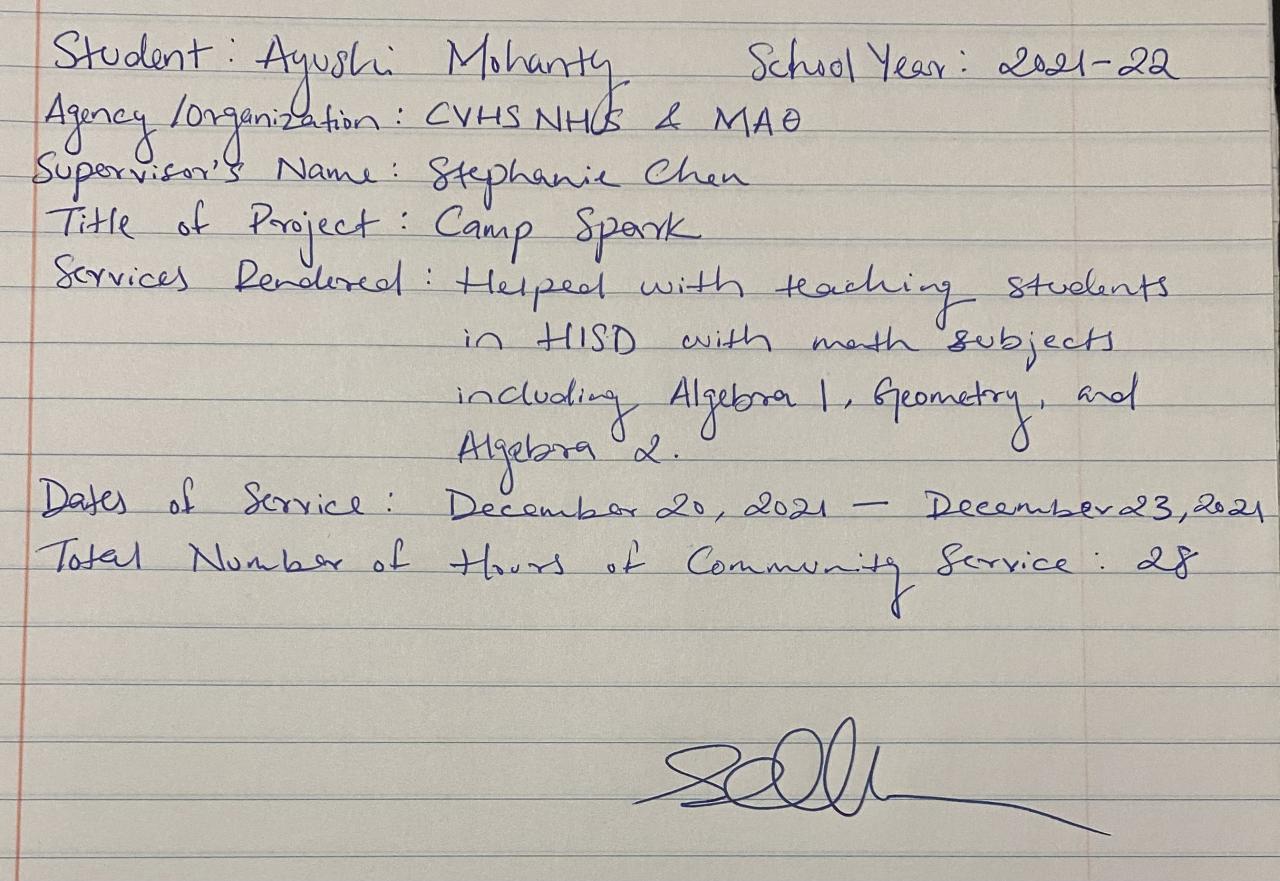 Student: Ayushi Mohanty School Year: 2021-22
Agency/Organization: CVHS NHS & MAΘ
Supervisor's Name: Stephanie Chen
Title of Project: Camp Spark
Services Rendered: Helped with teaching students
in HISD with math subjects
including Algebra 1, Geometry, and
Algebra 2.
Dates of Service: December 20, 2021 — December 23, 2021
Total Number of Hours of Community Service: 28